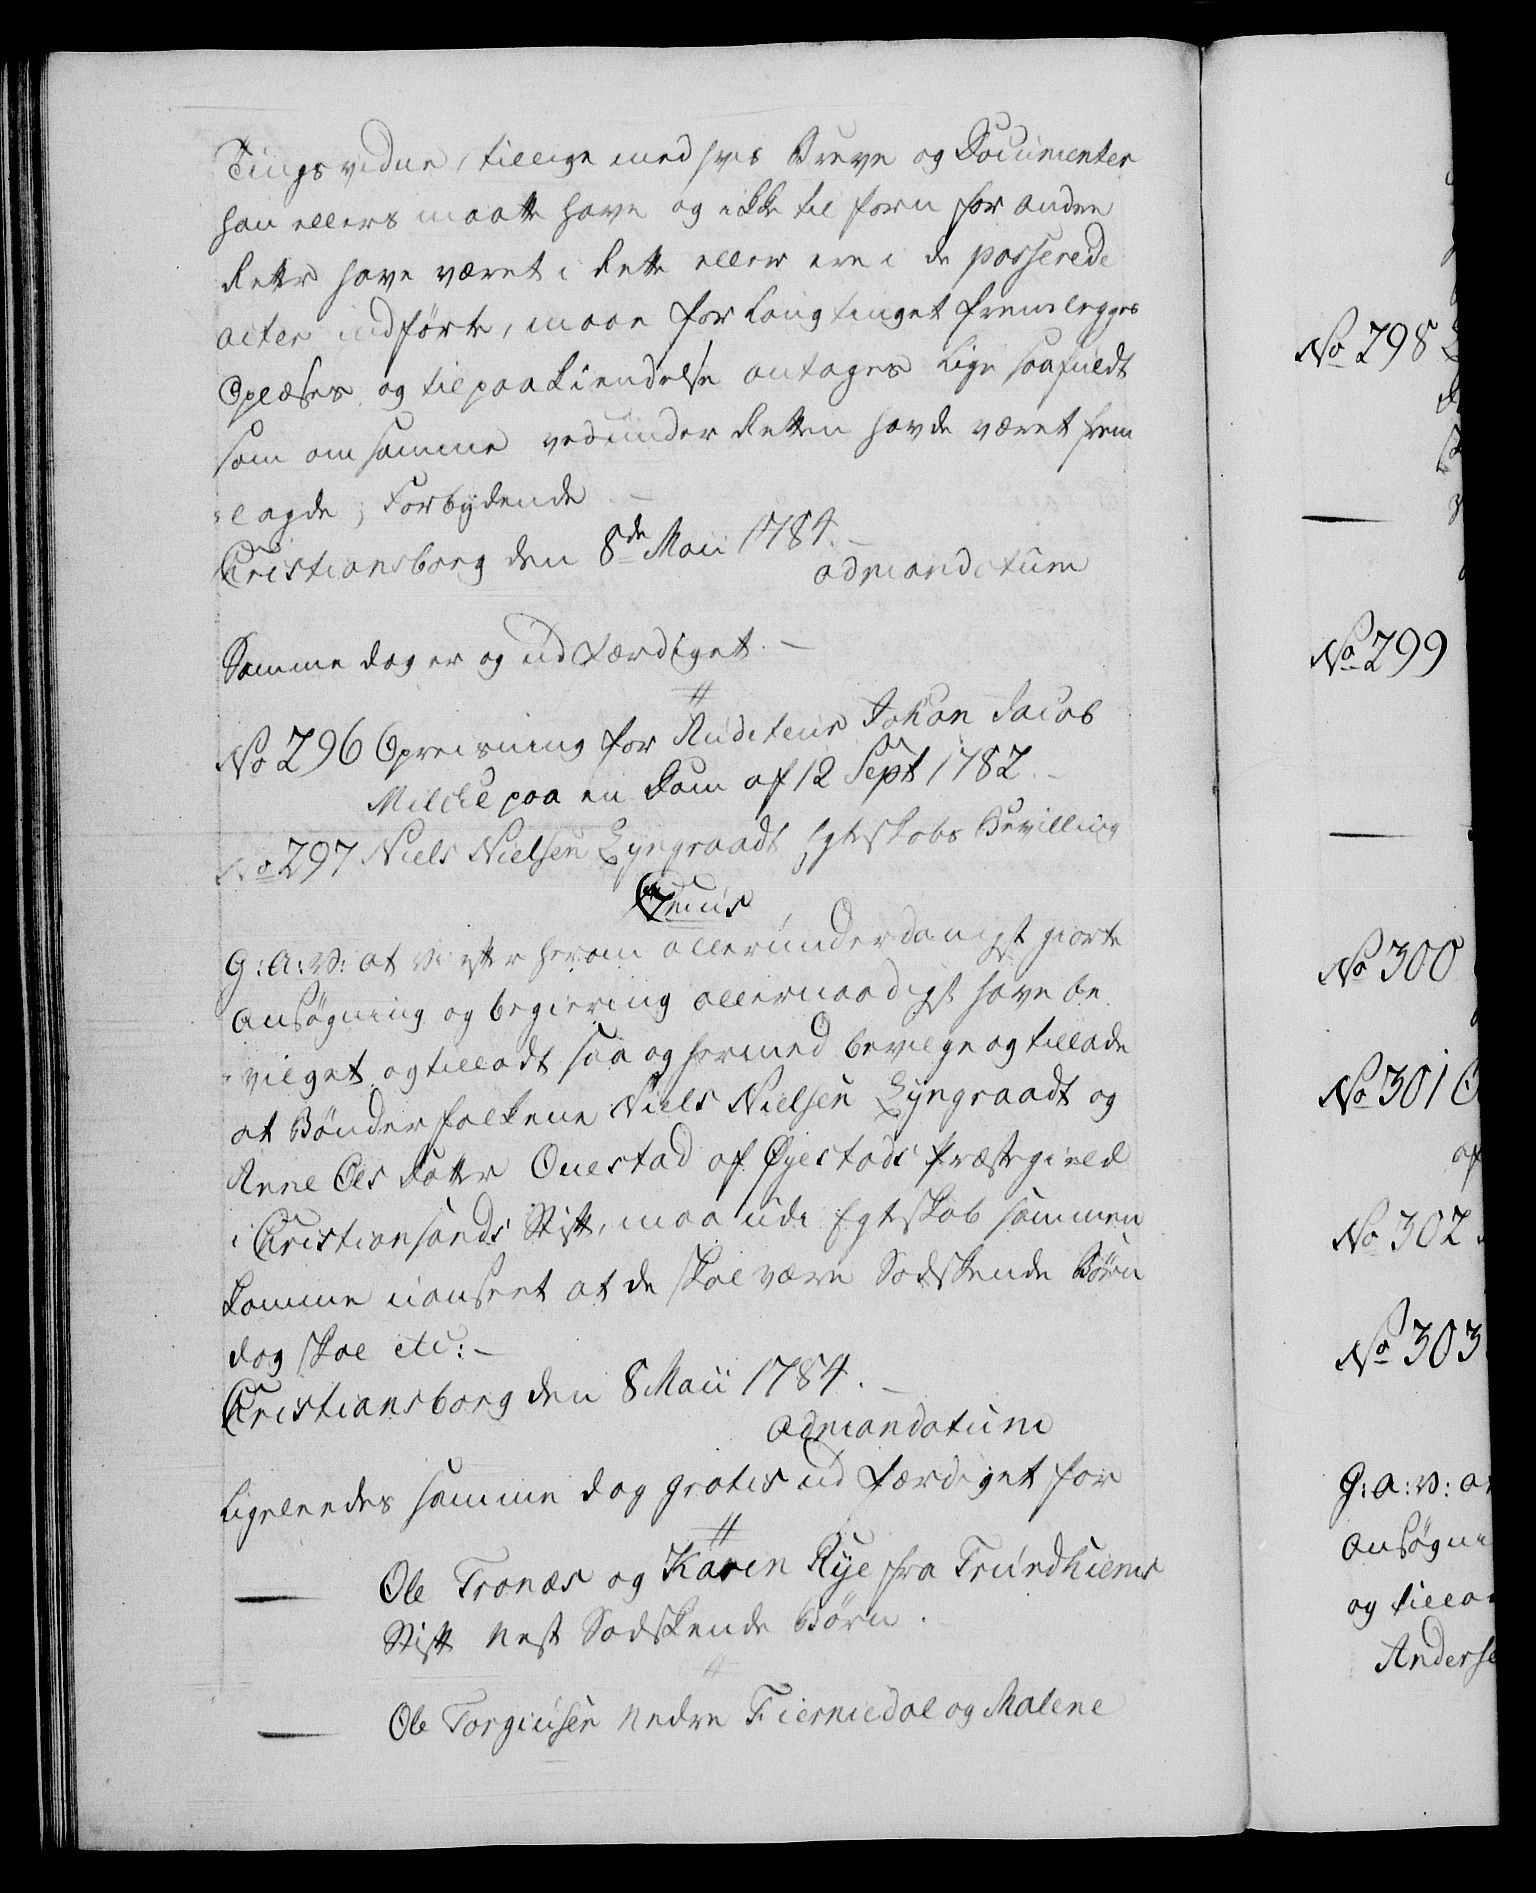 Tingsvidne, tillige med hvis Breve og Documenter
han ellers maatte have og ikke til forn for anden
Rett have været i Rette eller ere i de passerede
acter indførte, maae for Laugtinget fremlegges
Oplæses og til paakiendelse antages lige saafuldt
som om samme ved under Retten havde været frem
lagde; Forbydende
Christiansborg den 8de Maii 1784.
admandatum
Samme dag er og udfærdiget
No 296 Opreisning for Auditeur Johan Jacob
Milche paa en Dom af 12 Sept 1782
No 297 Niels Nielsen Lyngraadt Egteskabs Bevilling
G: A: V: at Vi efter herom allerunderdanigst giorte
Ansøgning og begiering allernaadigst have be
vilget og tilladt saa og hermed bevilge og tillade
at Bønderfolkene Niels Nielsen Lyngraadt og
Anne Ols datter Ouestad af Øyestads Præstegield
i Christiansands Stift, maa udi Egteskab sammen
komme uanseet at de skal være Sødskende Børn
dog skal etc: –
Christiansborg den 8 Maii 1784.
admandatum
Ligeleedes samme dag gratis udfærdiget for
Ole Tronæs og Karen Rye fra Trundhiems
Stift Nest Sødskende Børn.
Ole Torgiusen Nedre Fiermedal og Malene
No 298
No 299
No 300
No 301
No 302
No 303
G: A: V: at
Ansøgni
og tilla
Anderse